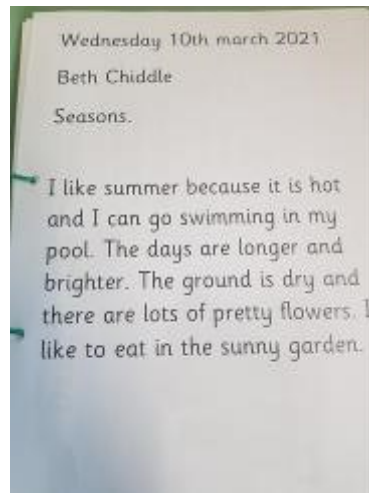 Wednesday 10th march 2021
Beth Chiddle
Seasons.
I like summer because it is hot
and I can go swimming in my
pool. The days are longer and
brighter. The ground is dry and
there are lots of pretty flowers. I
like to eat in the sunny garden.